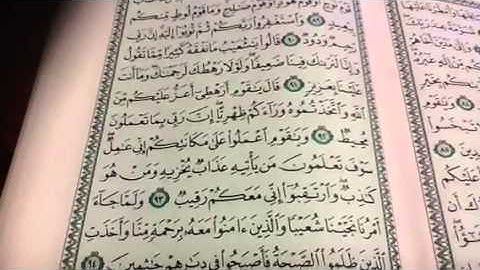 قَوْمَ نُوحٍ أَوْ قَوْمَ هُودٍ أَوْ قَوْمَ صَٰلِحٍ وَمَا قَوْمُ لُوطٍ مِّنكُم
٨٩ وَٱسْتَغْفِرُوا۟ رَبَّكُمْ ثُمَّ تُوبُوٓا۟ إِلَيْهِ إِنَّ
رَحِيمٌ وَدُودٌ ٩٠ قَالُوا۟ يَٰشُعَيْبُ مَا نَفْقَهُ كَثِيرًا مِّمَّا تَقُولُ
وَإِنَّا لَنَرَىٰكَ فِينَا ضَعِيفًا وَلَوْلَا رَهْطُكَ لَرَجَمْنَٰكَ وَمَآ أَنتَ
عَلَيْنَا بِعَزِيزٍ ٩١ قَالَ يَٰقَوْمِ أَرَهْطِىٓ أَعَزُّ عَلَيْكُم مِّنَ
ٱللَّهِ وَٱتَّخَذْتُمُوهُ وَرَآءَكُمْ ظِهْرِيًّا إِنَّ رَبِّى بِمَا تَعْمَلُونَ
مُحِيطٌ ٩٢ وَيَٰقَوْمِ ٱعْمَلُوا۟ عَلَىٰ مَكَانَتِكُمْ إِنِّى عَٰمِلٌ
سَوْفَ تَعْلَمُونَ مَن يَأْتِيهِ عَذَابٌ يُخْزِيهِ وَمَنْ هُوَ
كَٰذِبٌ وَٱرْتَقِبُوٓا۟ إِنِّى مَعَكُمْ رَقِيبٌ ٩٣ وَلَمَّا جَآءَ
أَمْرُنَا نَجَّيْنَا شُعَيْبًا وَٱلَّذِينَ ءَامَنُوا۟ مَعَهُۥ بِرَحْمَةٍ مِّنَّا وَأَخَذَتِ
ٱلَّذِينَ ظَلَمُوا۟ ٱلصَّيْحَةُ فَأَصْبَحُوا۟ فِى دِيَٰرِهِمْ جَٰثِمِينَ ٩٤